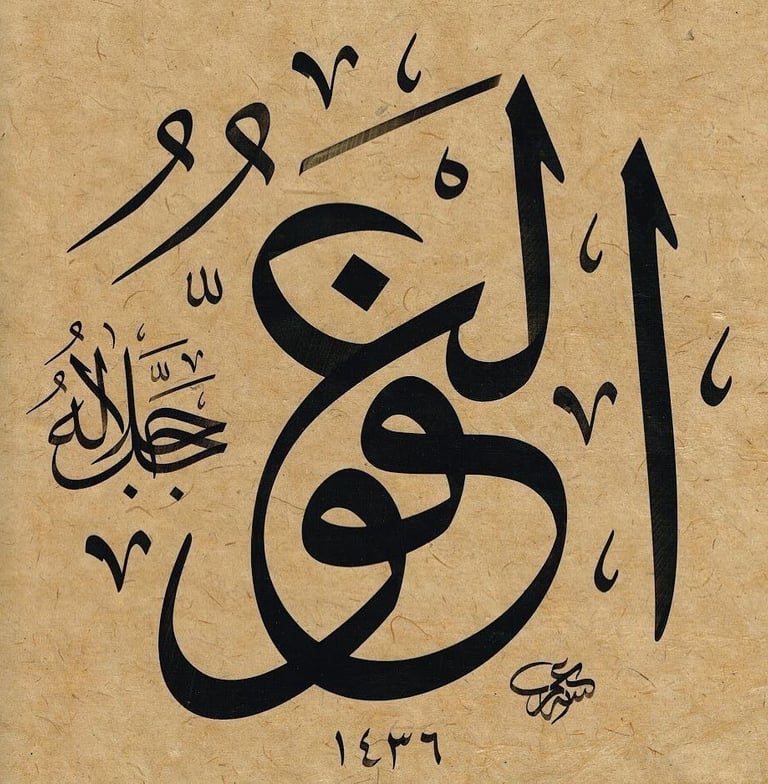 الْعَفُوُّ
جَلَّ جَلَالُهُ
١٤٣٦